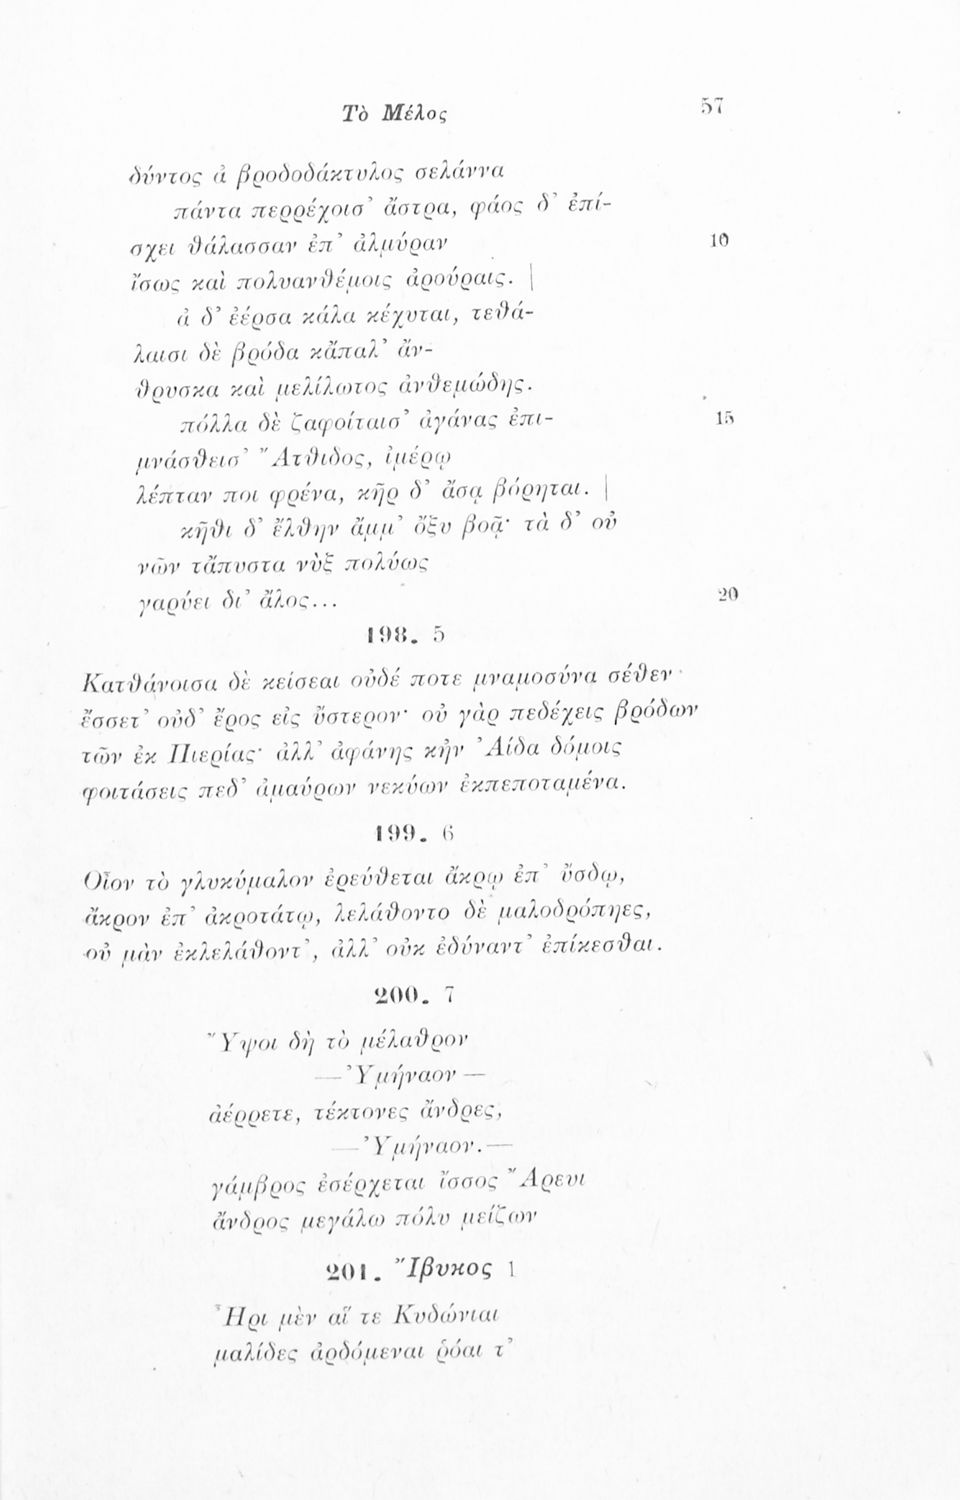 Τὸ Μέλος 57
δύντος ἀ βροδοδάκτυλος σελάννα
πάντα περρέχοισ᾽ ἄστρα, φάος δ᾽ ἐπί-
σχει θάλασσαν ἐπ᾽ ἀλμύραν 10
ἴσως καὶ πολυανθέμοις ἀρούραις. |
ἀ δ᾽ ἐέρσα κάλα κέχυται, τεθά-
λαισι δὲ βρόδα κἄπαλ᾽ ἄν-
θρυσκα καὶ μελίλωτος ἀνθεμώδης.
πόλλα δὲ ζαφοίταισ᾽ ἀγάνας ἐπι- 15
μνάσθεισ᾽ Ἄτθιδος, ἰμέρῳ
λέπταν ποι φρένα, κῆρ δ᾽ ἄσᾳ βόρηται. |
κῆθι δ᾽ ἔλθην ἄμμ᾽ ὄξυ βοᾷ· τὰ δ᾽ οὐ
νῶν τἄπυστα νὺξ πολύως
γαρύει δι᾽ ἄλος... 20
198. 5
Κατθάνοισα δὲ κείσεαι οὐδέ ποτε μναμοσύνα σέθεν
ἔσσετ᾽ οὐδ᾽ ἔρος εἰς ὔστερον· οὐ γὰρ πεδέχεις βρόδων
τῶν ἐκ Πιερίας· ἀλλ᾽ ἀφάνης κἠν Ἀίδα δόμοις
φοιτάσεις πεδ᾽ ἀμαύρων νεκύων ἐκπεποταμένα.
199. 6
Οἶον τὸ γλυκύμαλον ἐρεύθεται ἄκρῳ ἐπ᾽ ὔσδῳ,
ἄκρον ἐπ᾽ ἀκροτάτῳ, λελάθοντο δὲ μαλοδρόπηες,
οὐ μὰν ἐκλελάθοντ᾽, ἀλλ᾽ οὐκ ἐδύναντ᾽ ἐπίκεσθαι.
200. 7
Υ̓́ψοι δὴ τὸ μέλαθρον
— Υ̓μήναον —
ἀέρρετε, τέκτονες ἄνδρες,
— Υ̓μήναον. —
γάμβρος ἐσέρχεται ἴσσος Ἄρευι
ἄνδρος μεγάλω πόλυ μείζων
201. Ἴβυκος 1
Ἦρι μὲν αἵ τε Κυδώνιαι
μαλίδες ἀρδόμεναι ῥόαι τ᾽